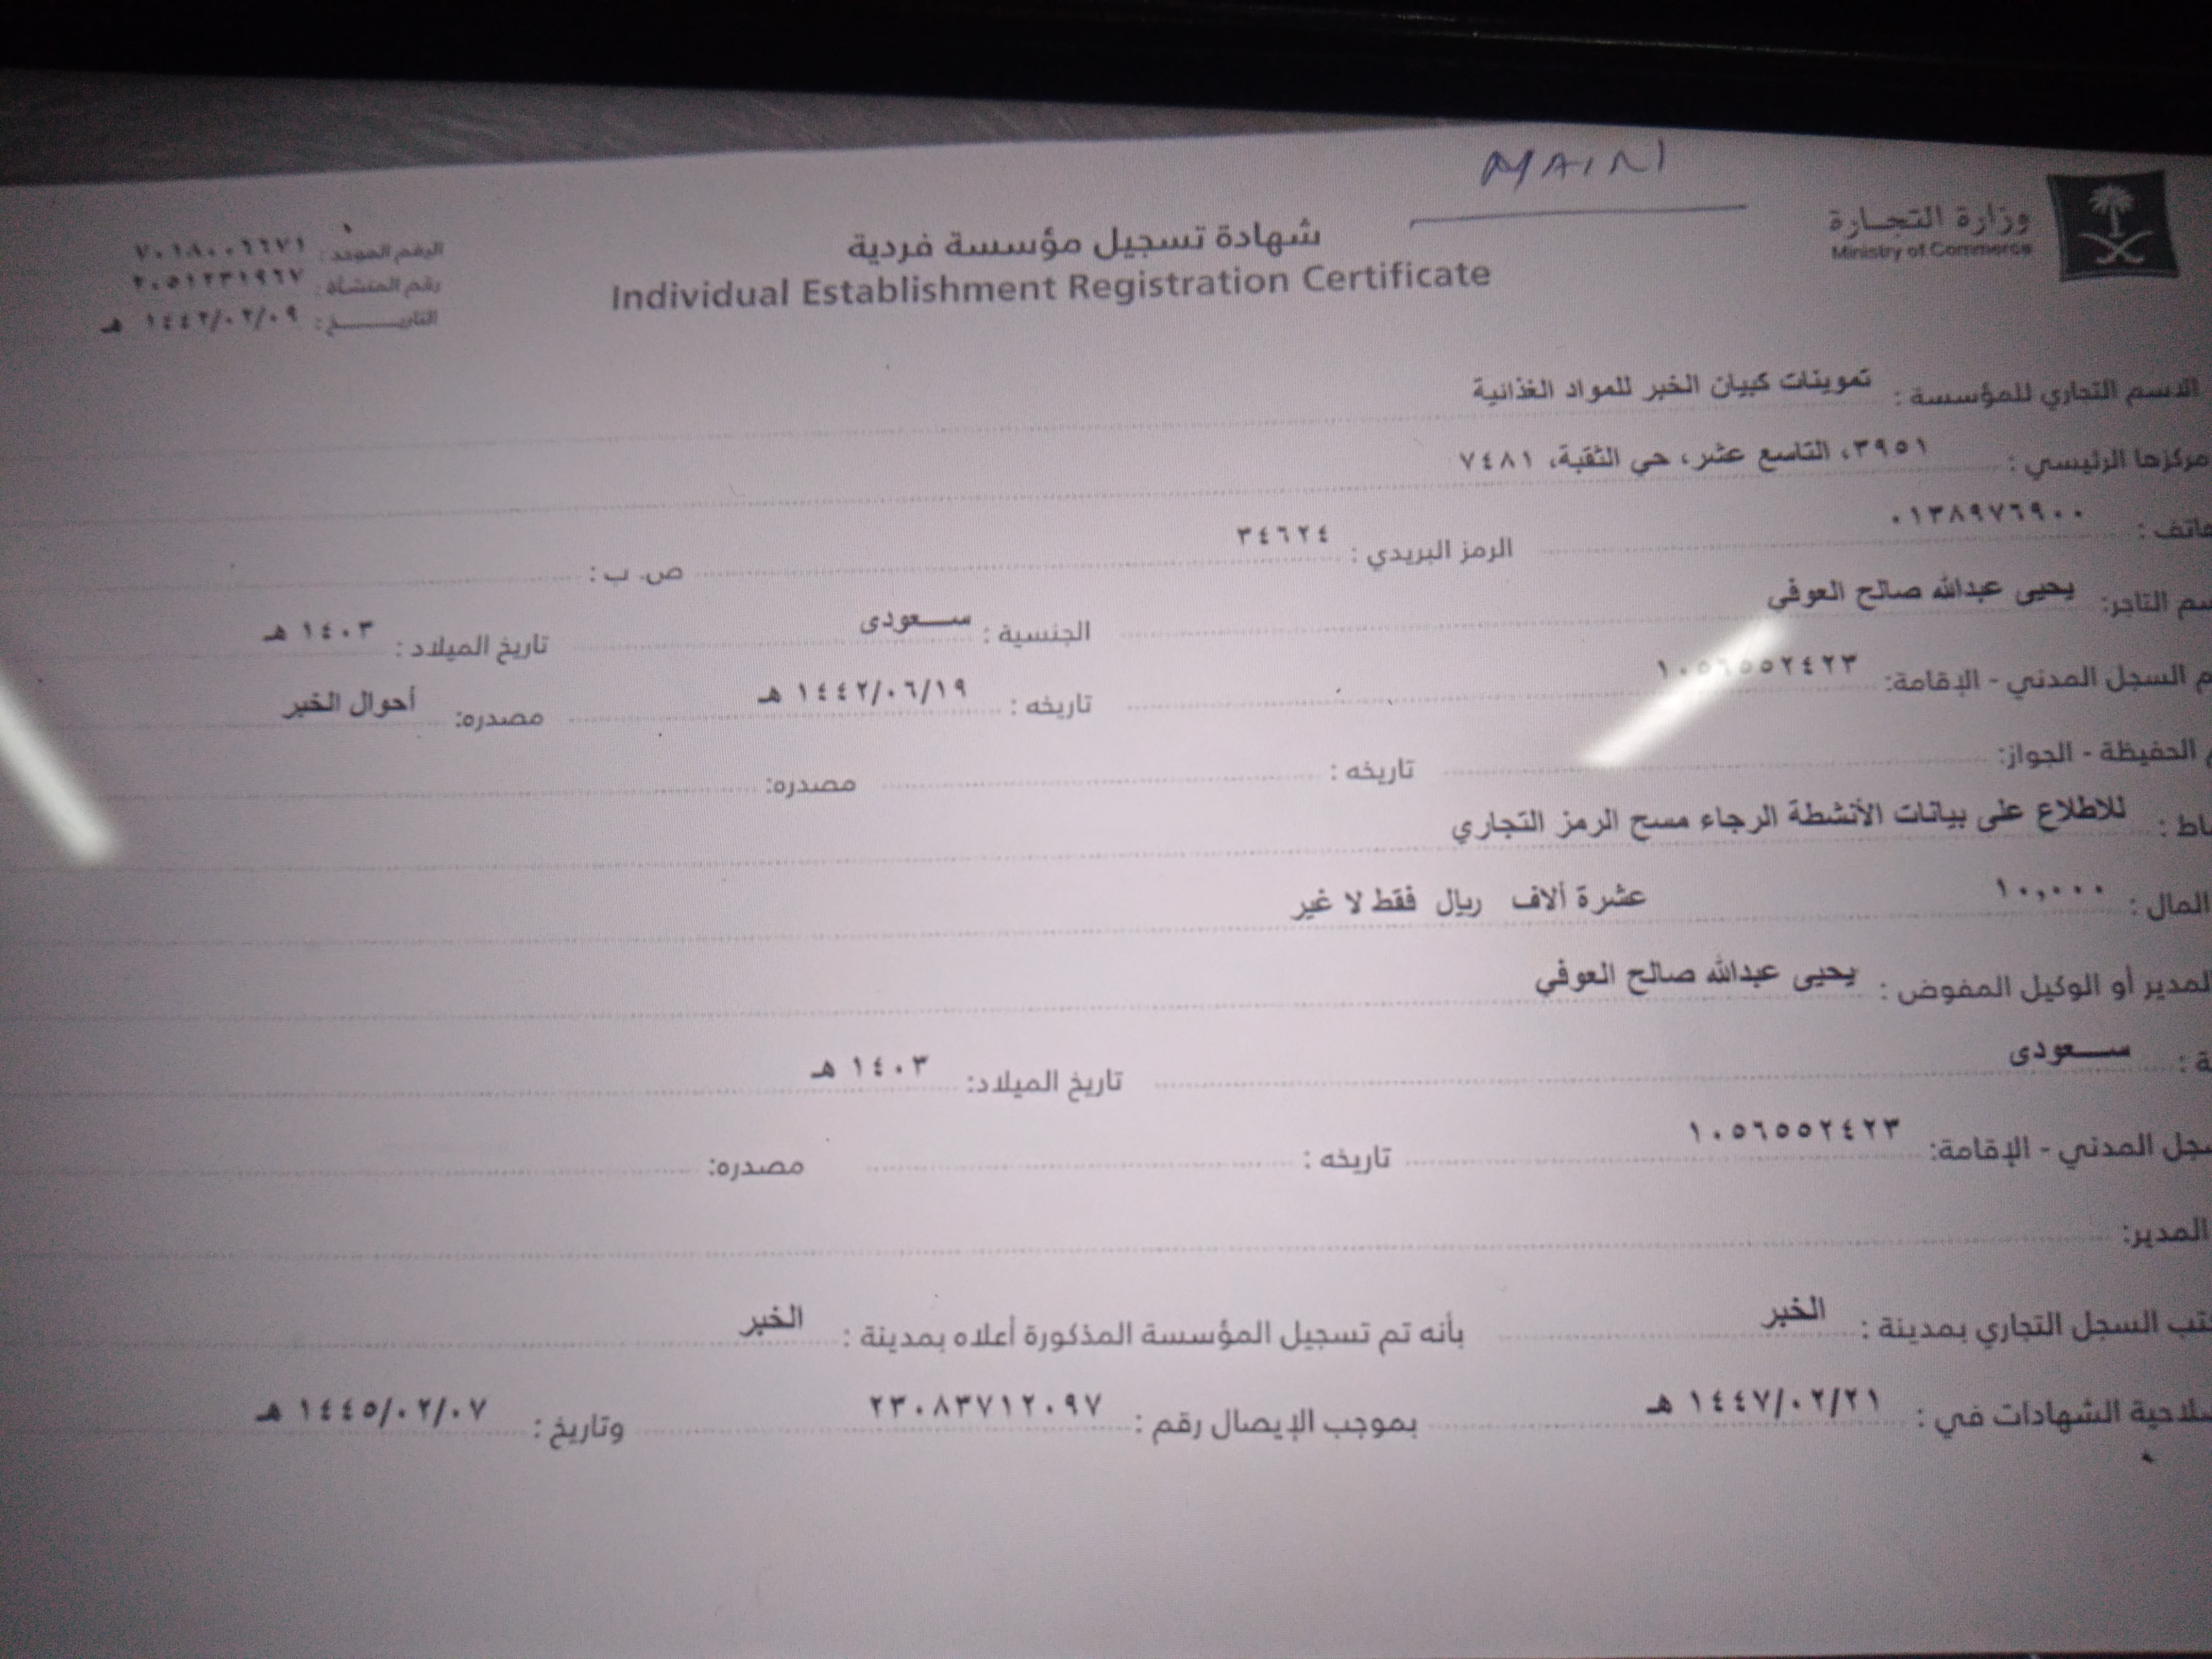 MAIN
وزارة التجارة
Ministry of Commerce
شهادة تسجيل مؤسسة فردية
Individual Establishment Registration Certificate
الرقم الموحد : ٧٠١٨٠٠٦٦٧١
رقم المنشأة : ٢٠٥١٢٣١٩٦٧
التاريـــــــخ : ١٤٤٢/٠٢/٠٩ هـ
الاسم التجاري للمؤسسة : تموينات كبيان الخبر للمواد الغذائية
مركزها الرئيسي : ٣٩٥١، التاسع عشر، حي الثقبة، ٧٤٨١
هاتف : ٠١٣٨٩٧٦٩٠٠ الرمز البريدي : ٣٤٦٢٤ ص. ب :
سم التاجر: يحيى عبدالله صالح العوفي الجنسية : ســـعودى تاريخ الميلاد : ١٤٠٣ هـ
م السجل المدني - الإقامة: ١٠٥٦٥٥٢٤٢٣ تاريخه : ١٤٤٢/٠٦/١٩ هـ مصدره: أحوال الخبر
الحفيظة - الجواز: تاريخه : مصدره:
اط : للاطلاع على بيانات الأنشطة الرجاء مسح الرمز التجاري
المال : ١٠,٠٠٠ عشرة ألاف ريال فقط لا غير
المدير أو الوكيل المفوض : يحيى عبدالله صالح العوفي
ة : ســـعودى تاريخ الميلاد: ١٤٠٣ هـ
سجل المدني - الإقامة: ١٠٥٦٥٥٢٤٢٣ تاريخه : مصدره:
المدير:
تب السجل التجاري بمدينة : الخبر بأنه تم تسجيل المؤسسة المذكورة أعلاه بمدينة : الخبر
لاحية الشهادات في : ١٤٤٧/٠٢/٢١ هـ بموجب الإيصال رقم : ٢٣٠٨٣٧١٢٠٩٧ وتاريخ : ١٤٤٥/٠٢/٠٧ هـ